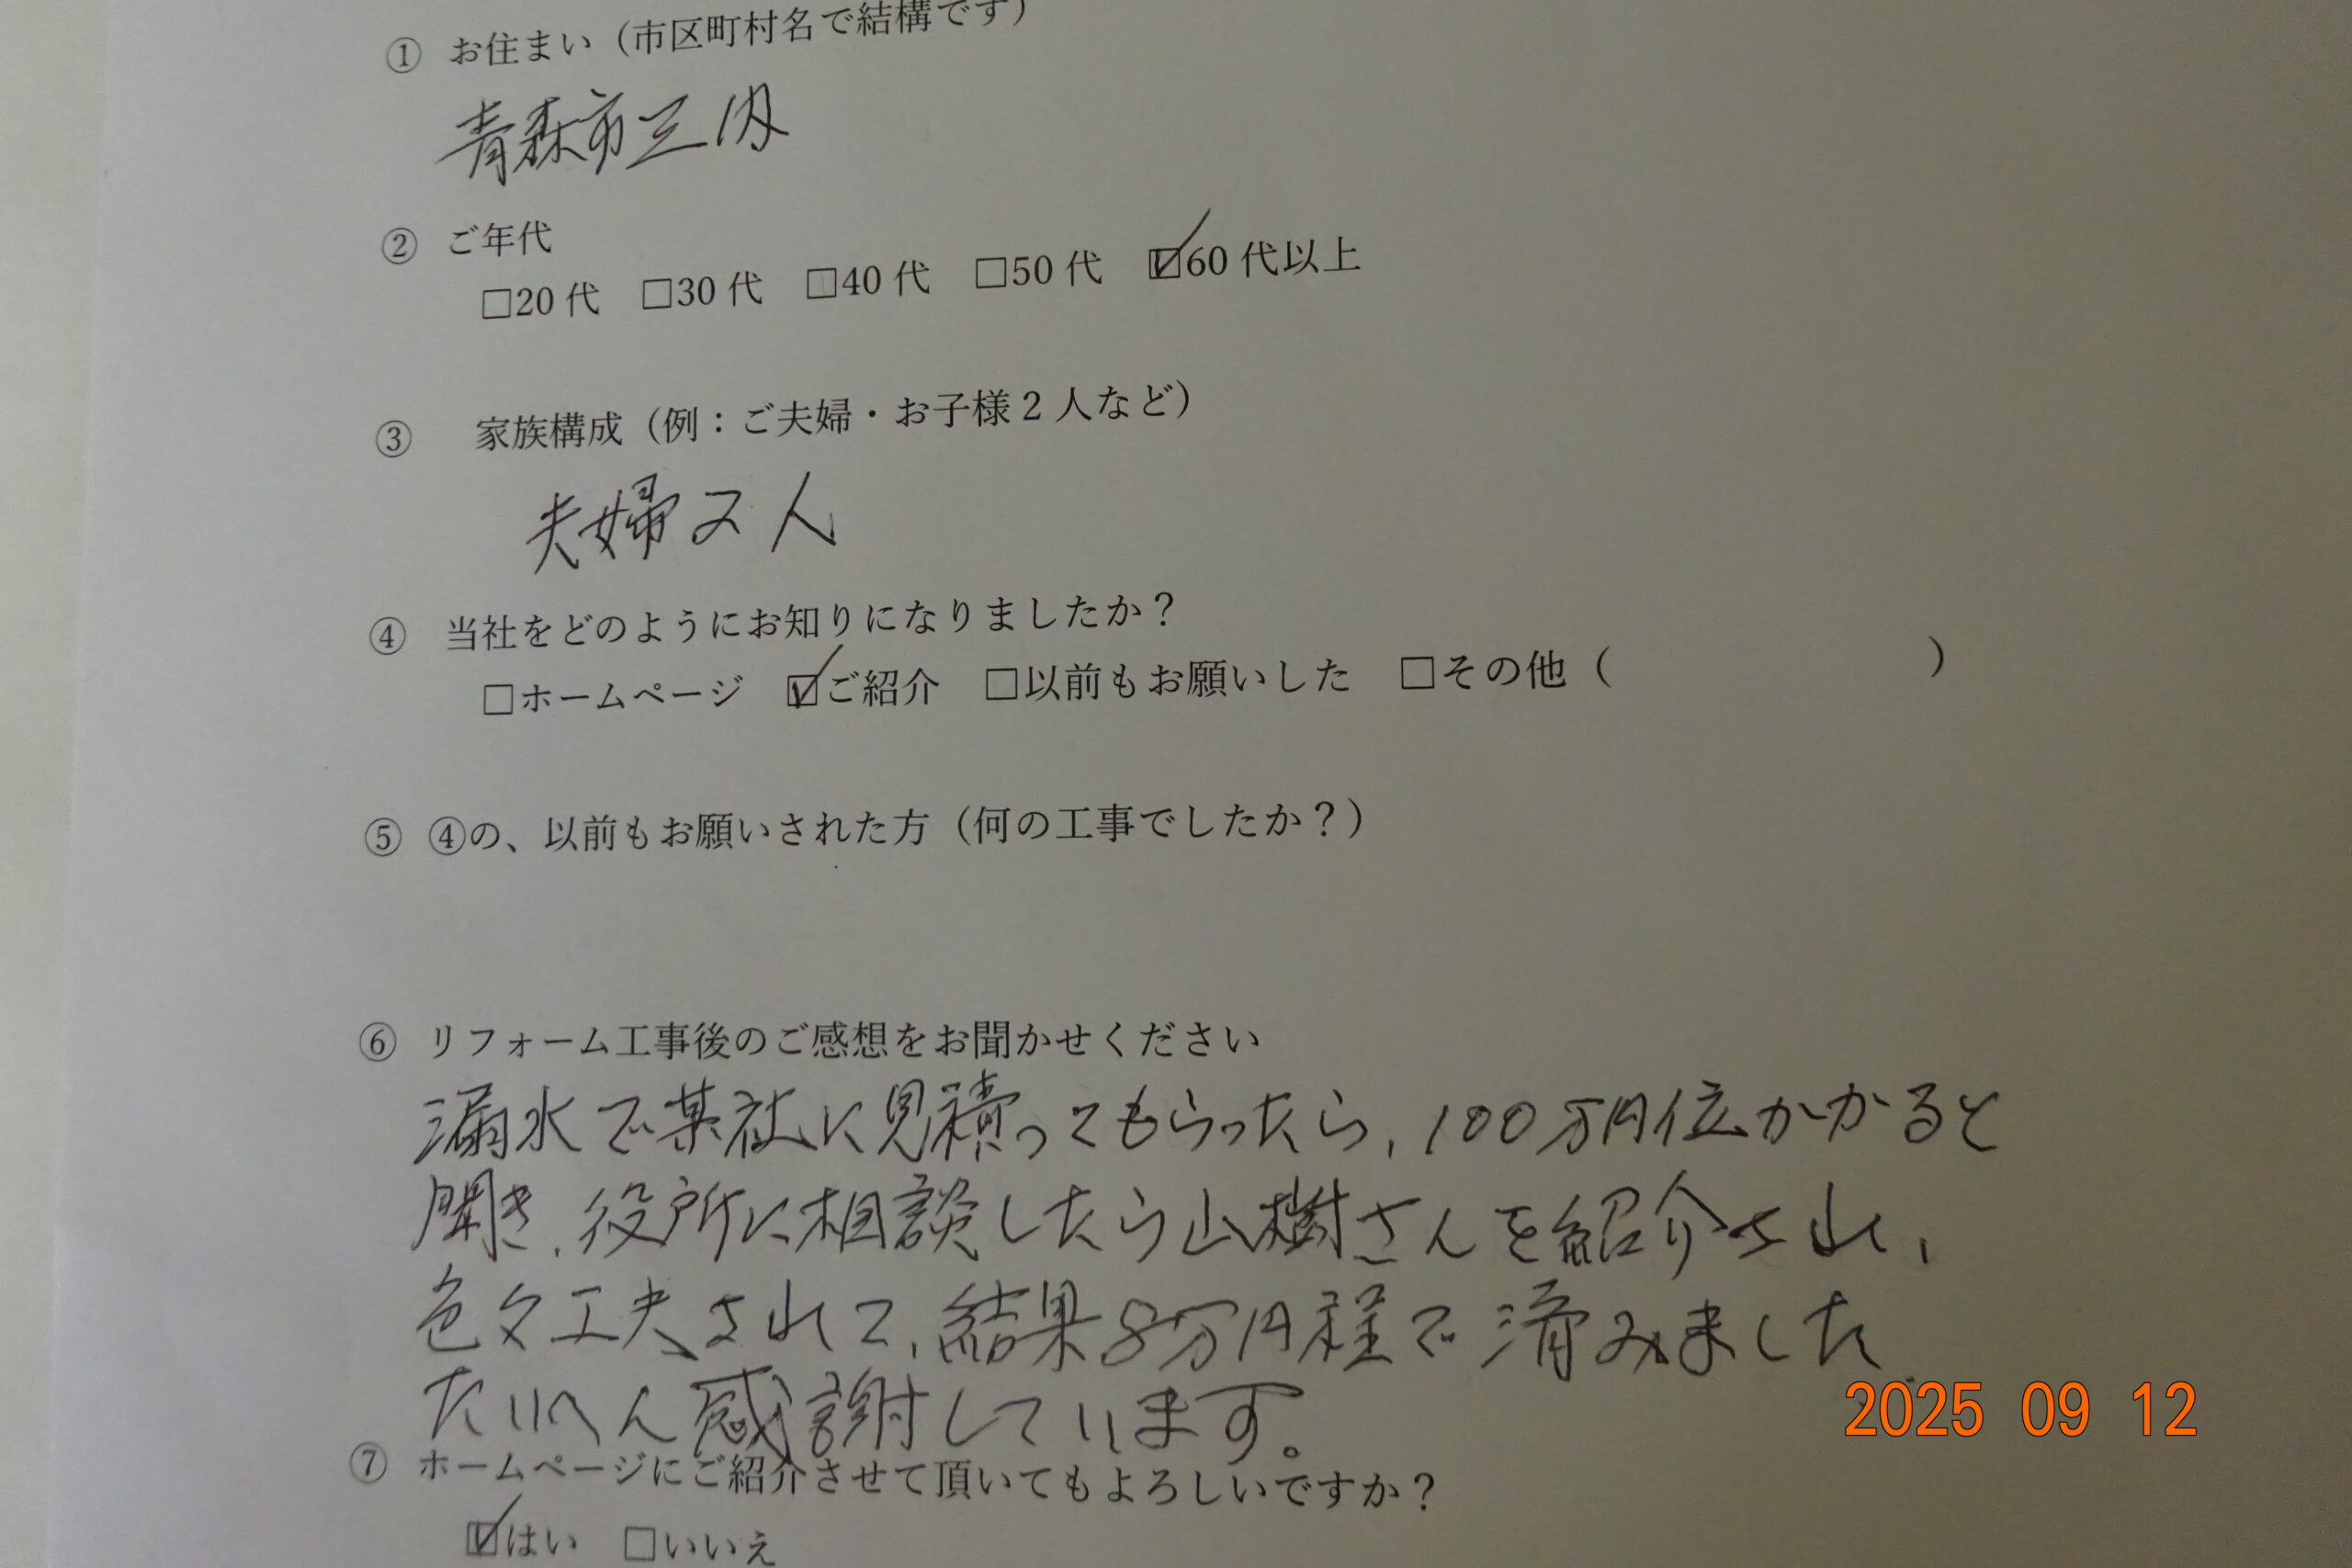 ① お住まい（市区町村名で結構です）
青森市三内
② ご年代
□20代 □30代 □40代 □50代 ☑60代以上
③ 家族構成（例：ご夫婦・お子様2人など）
夫婦2人
④ 当社をどのようにお知りになりましたか？
□ホームページ ☑ご紹介 □以前もお願いした □その他（ ）
⑤ ④の、以前もお願いされた方（何の工事でしたか？）
⑥ リフォーム工事後のご感想をお聞かせください
漏水で某社に見積ってもらったら、100万円位かかると
聞き、役所に相談したら山樹さんを紹介され、
色々工夫されて、結果8万円程で済みました。
たいへん感謝しています。
2025 09 12
⑦ ホームページにご紹介させて頂いてもよろしいですか？
☑はい □いいえ